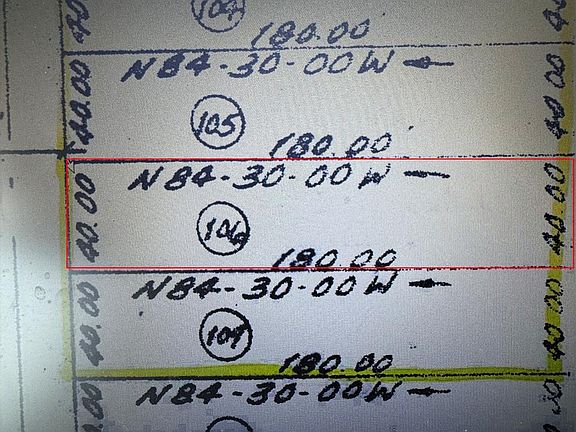 104
180.00
N84-30-00W
40.00
40.00
105
180.00
N84-30-00W
40.00
40.00
106
180.00
N84-30-00W
40.00
40.00
107
180.00
N84-30-00W